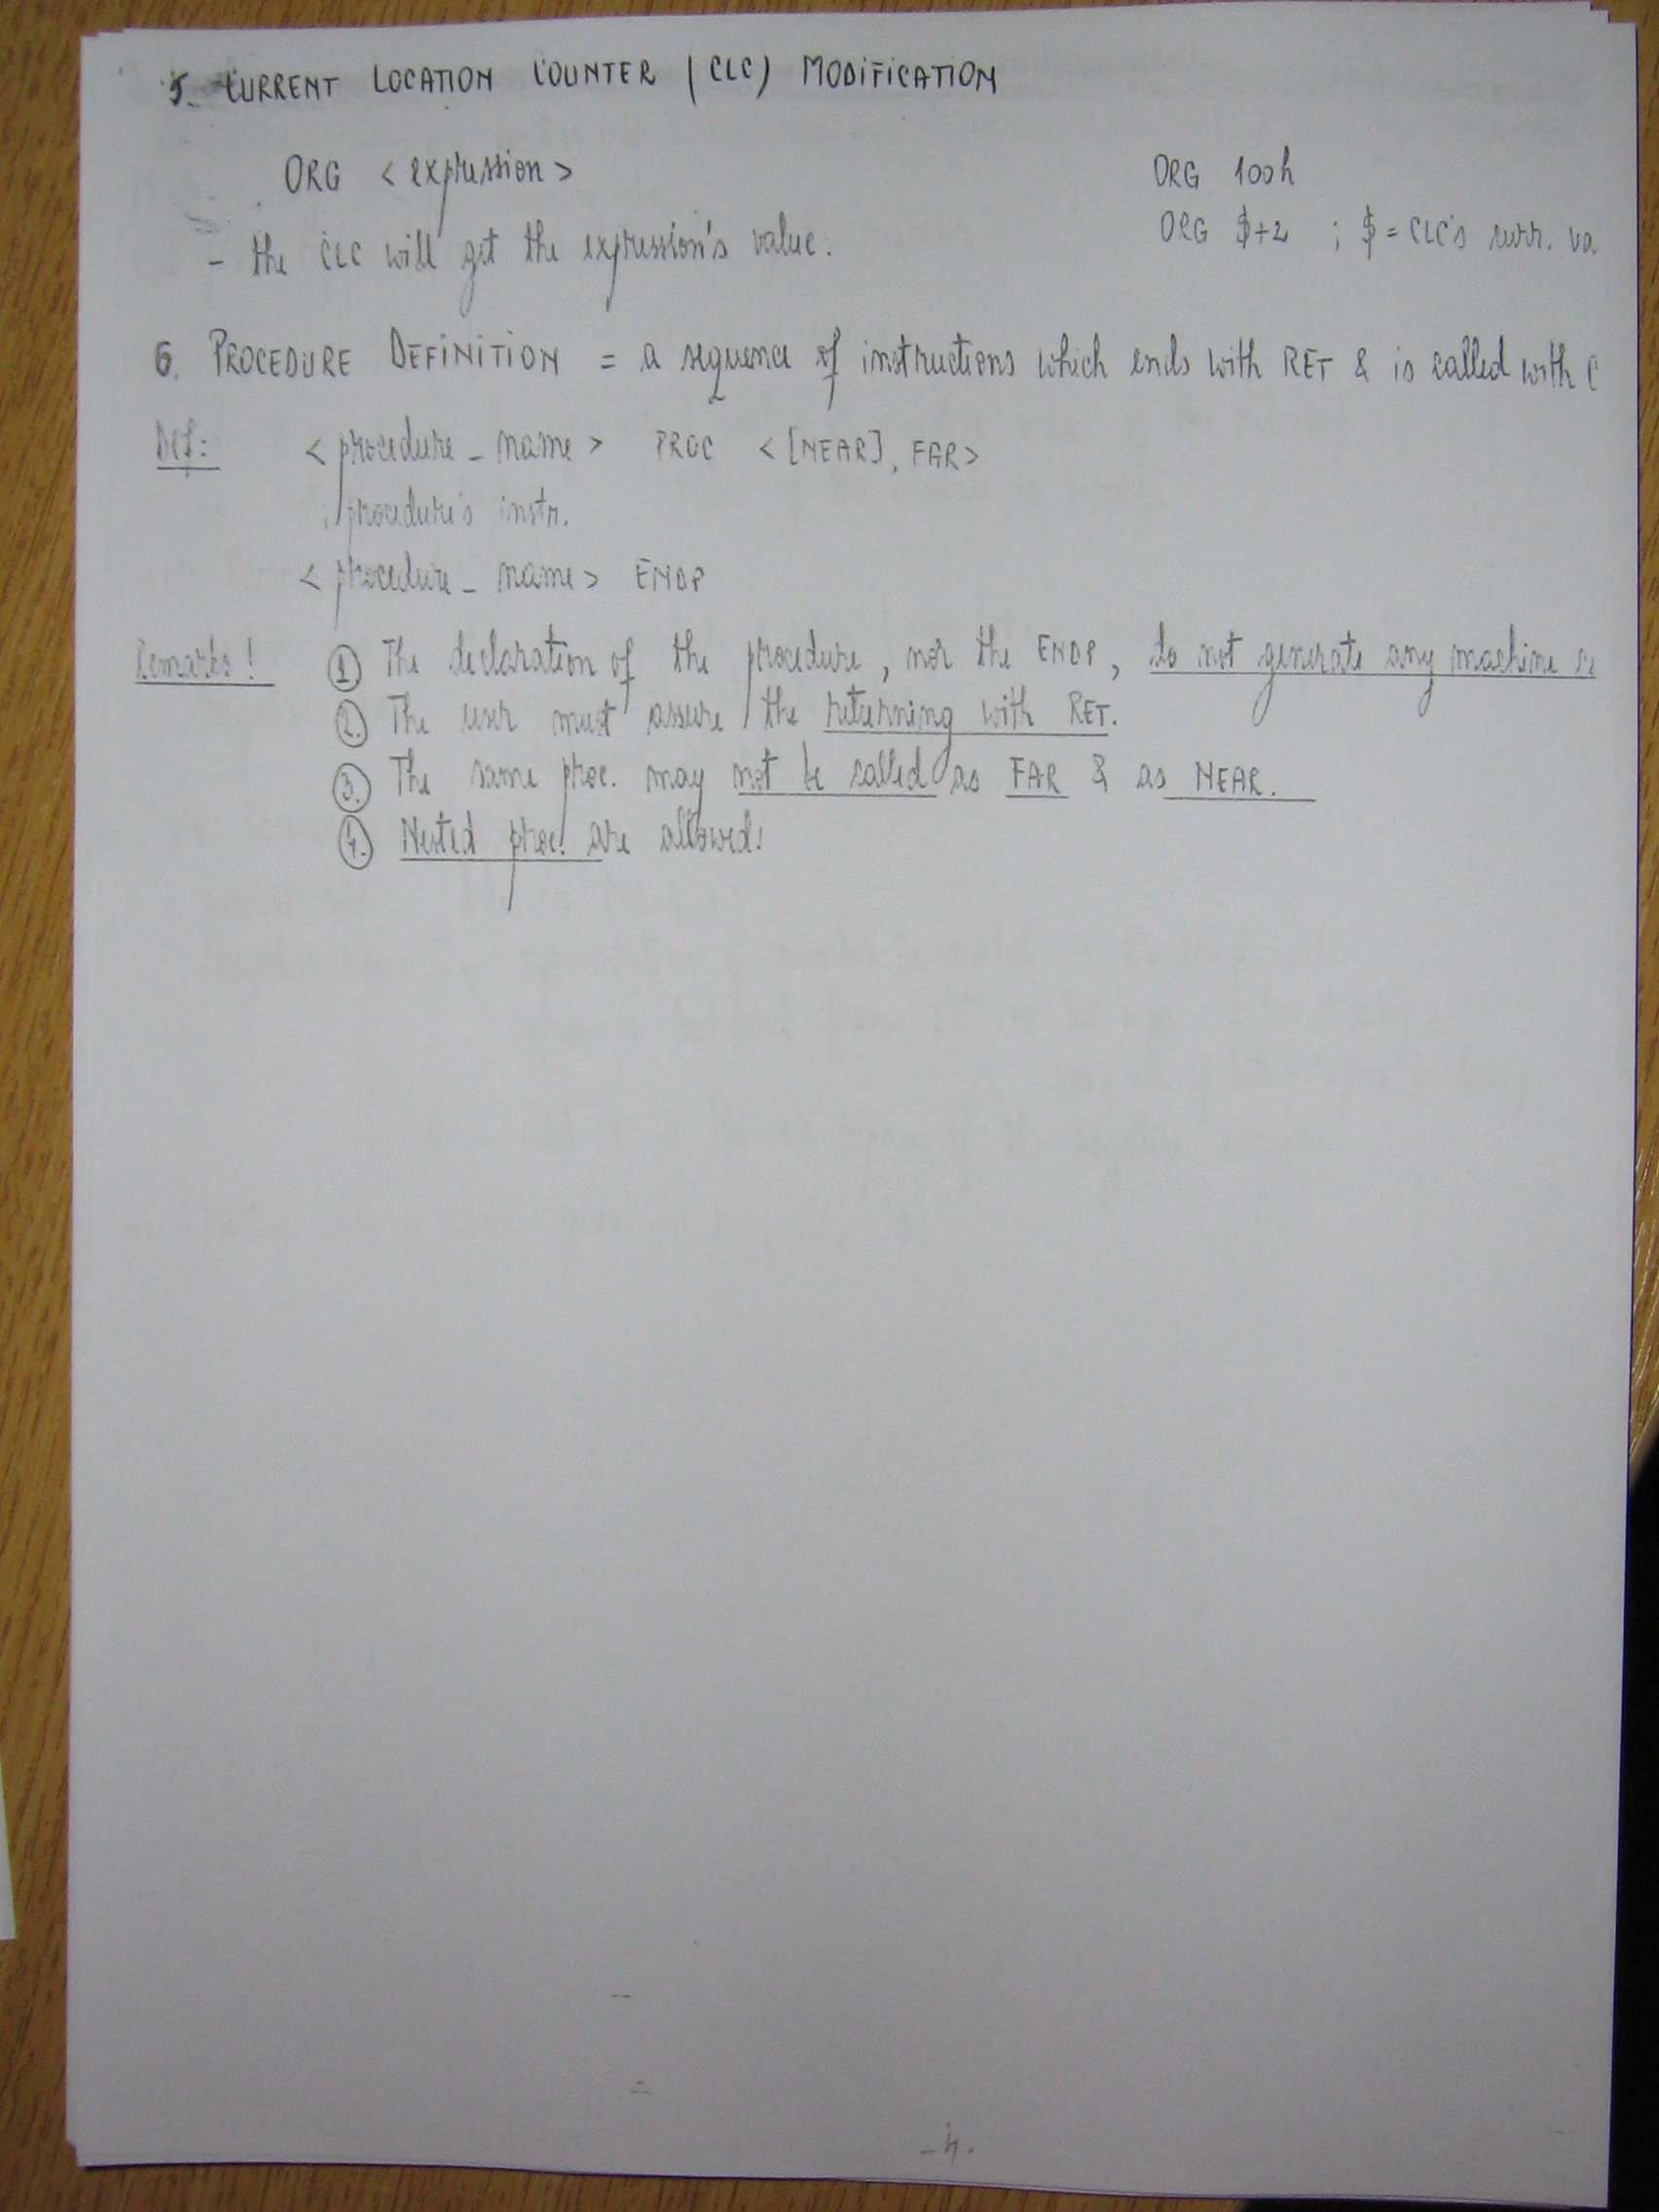 5. CURRENT LOCATION COUNTER (CLC) MODIFICATION
ORG <expression> ORG 100h
- the CLC will get the expression's value. ORG $+2 ; $ = CLC's curr. va
6. PROCEDURE DEFINITION = a sequence of instructions which ends with RET & is called with C
Def: <procedure_name> PROC <[NEAR], FAR>
; procedure's instr.
<procedure_name> ENDP
Remarks! 1 The declaration of the procedure, nor the ENDP, do not generate any machine
2. The user must assure the returning with RET.
3. The same proc. may not be called as FAR & as NEAR.
4. Nested proc. are allowed!
-4-